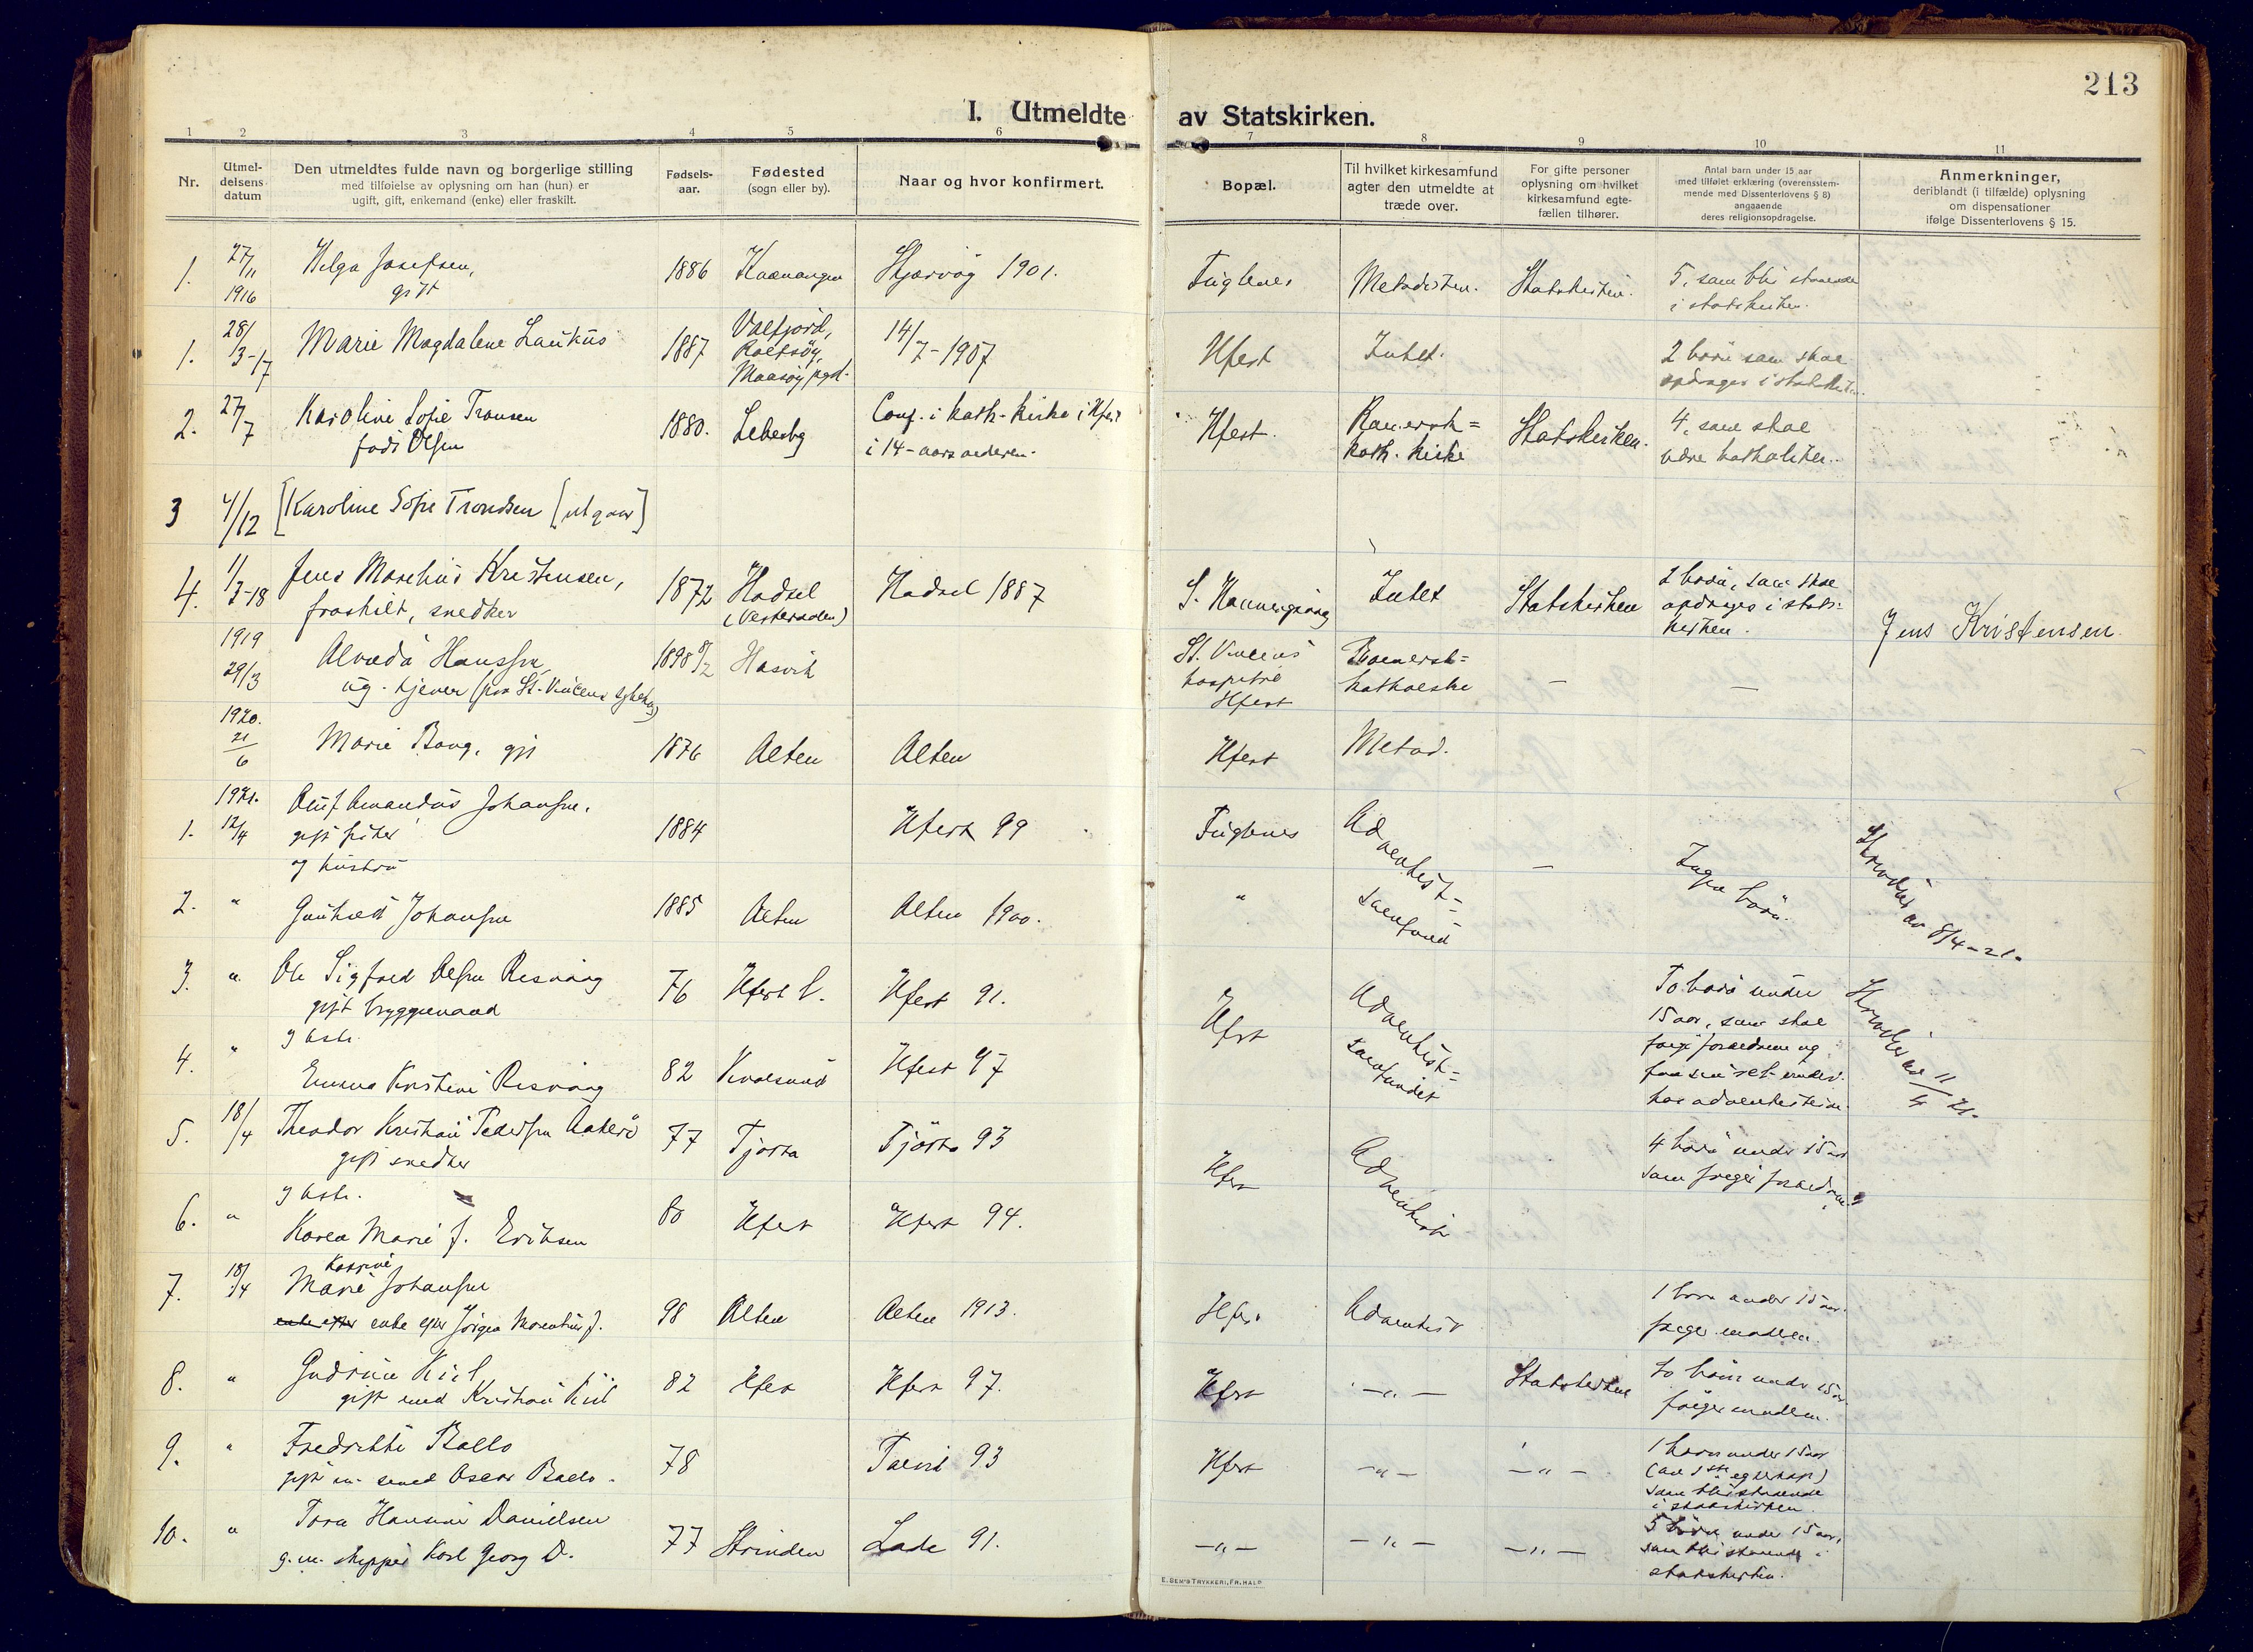 213
I. Utmeldte av Statskirken.
1 2 3 4 5 6 7 8 9 10 11
Nr.
Utmel-
delsens
datum
Den utmeldtes fulde navn og borgerlige stilling
med tilføielse av oplysning om han (hun) er
ugift, gift, enkemand (enke) eller fraskilt.
Fødsels-
aar.
Fødested
(sogn eller by).
Naar og hvor konfirmert.
Bopæl.
Til hvilket kirkesamfund
agter den utmeldte at
træde over.
For gifte personer
oplysning om hvilket
kirkesamfund egte-
fællen tilhører.
Antal barn under 15 aar
med tilføiet erklæring (overensstem-
mende med Dissenterlovens § 8)
angaaende
deres religionsopdragelse.
Anmerkninger,
deriblandt (i tilfælde) oplysning
om dispensationer
ifølge Dissenterlovens § 15.
1. 27/11 1916
Helga Josefsen,
gift
1886 Kvænangen Skjærvøy 1901.
Fuglenes Metodisten. Statskirken.
5, som bli staaende
i statskirken.
1. 28/13-17
Marie Magdalene Laukus
1887
Maasøy pgd.
14/7-1907
Hfest Intet.
2 børn som skal
opdrages i statskirken.
2. 27/7
Karoline Sofie Tronsen
født Olsen
1880. Lebesby
Conf. i kath. kirke i Hfest
i 14-aars alderen.
Hfest.
Romersk=
kath. kirke
Statskirken.
4, som skal
være katholiker.
3 4/12 [Karoline Sofie Trondsen [utgaar]
4. 11/3-18
Jens Marelius Kristensen,
fraskilt, snedker
1872
Hadsel
(Vesteraalen)
Hadsel 1887
Intet Statskirken
2 børn, som skal
opdrages i stats-
kirken.
Jens Kristensen
1919
29/3
Alvida Hansen,
ug. tjener (paa St. Vincens sykehus)
1898 Hasvik
St. Vincens
hospital
Hfest
Romersk=
katholske
— —
1920.
21/6
Marie Bang, gift
1876 Alten Alten
Hfest Metod.
1921.
1. 12/4
Oluf Amandus Johansen.
gift fisker
og hustru
1884 Hfest 99
Fuglenes
Adventist=
samfund
—
Ingen børn.
av 8/4-21.
2. "
Gunhild Johansen
1885 Alten Alten 1900.
"
3. "
Ole Sigfred Olsen Risvaag
gift bryggemand
og hstr.
76 Hfest l. Hfest 91.
Hfest
Adventist=
samfundet
To børn under
15 aar, som skal
følge forældrene og
hos adventisterne.
av 11/4 21.
4. "
Emma Kirstine Risvaag
82 Kvalsund Hfest 97
5. 18/4
Theodor Kristian Pedersen
gift snedker
og hstr.
77 Tjøtta Tjøtta 93
Hfest Adventist
4 børn under 15 aar
som følger forældrene
6. "
Karen Marie f. Eriksen
80 Hfest Hfest 94.
7. 18/4
Marie Johansen
enke efter enke efter Jørgen Morentius J.
98 Alten Alten 1913.
Hfest Adventist
1 barn under 15 aar.
følger moderen.
8. "
Gudrun Kiil
gift med Kristian Kiil
82 Hfest Hfest 97.
Hfest —"— Statskirken
to børn under 15 aar
følger moderen.
9. "
Fredrikke Ballo
gift m. smed Oscar Ballo.
78 Talvik 93
Hfest —"— —"—
1 barn under 15 aar
(av 1ste egteskap)
som bli staaende
i statskirken.
10. "
Tora Hansine Danielsen
g. m. skipper Karl Georg D.
77 Strinden Lade 91.
—"— —"— —"—
5 børn under 15 aar,
som bli staaende i
statskirken.
E. SEM'S TRYKKERI, FR.HALD